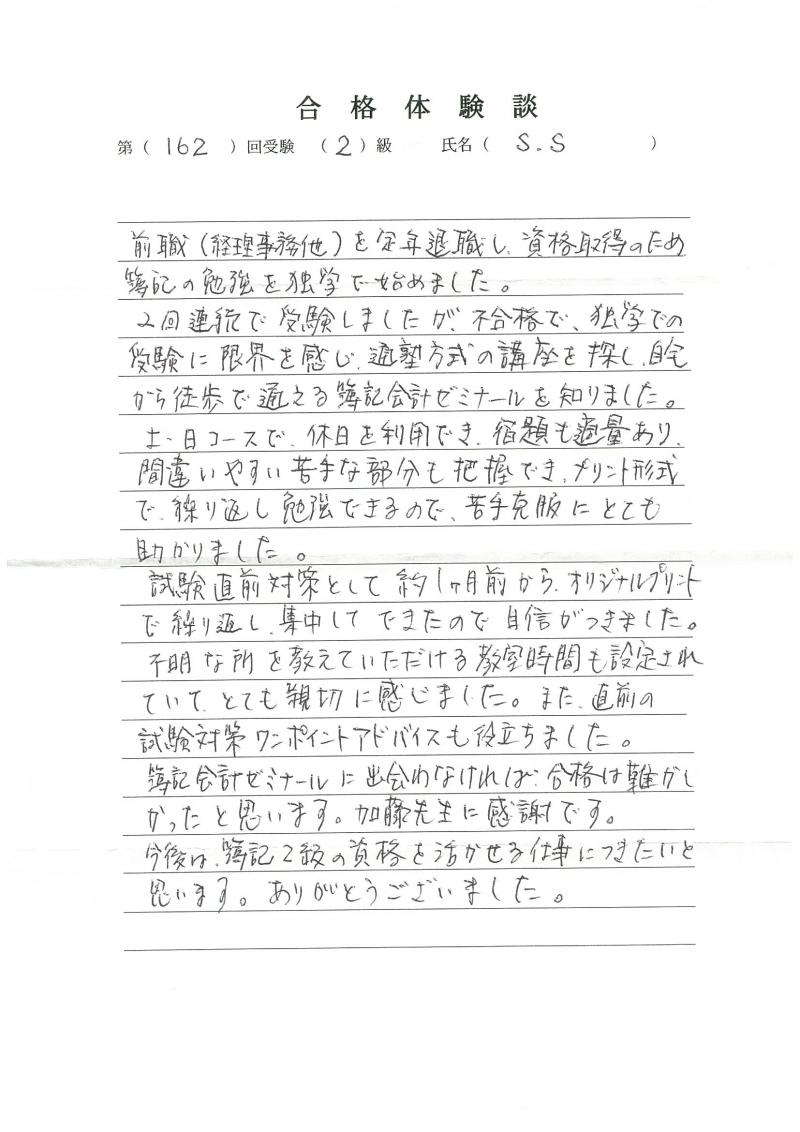 合格体験談
第（162）回受験（2）級 氏名（S.S）
前職（経理事務他）を定年退職し、資格取得のため
簿記の勉強を独学で始めました。
2回連続で受験しましたが、不合格で、独学での
受験に限界を感じ、通塾方式の講座を探し、自宅
から徒歩で通える簿記会計ゼミナールを知りました。
土・日コースで、休日を利用でき、宿題も適量あり、
間違いやすい苦手な部分も把握でき、プリント形式
で、繰り返し勉強できるので、苦手克服にとても
助かりました。
試験直前対策として約1ヶ月前から、オリジナルプリント
で繰り返し、集中してできたので自信がつきました。
不明な所を教えていただける教室時間も設定され
ていて、とても親切に感じました。また、直前の
試験対策ワンポイントアドバイスも役立ちました。
簿記会計ゼミナールに出会わなければ、合格は難かし
かったと思います。加藤先生に感謝です。
今後は、簿記2級の資格を活かせる仕事につきたいと
思います。ありがとうございました。